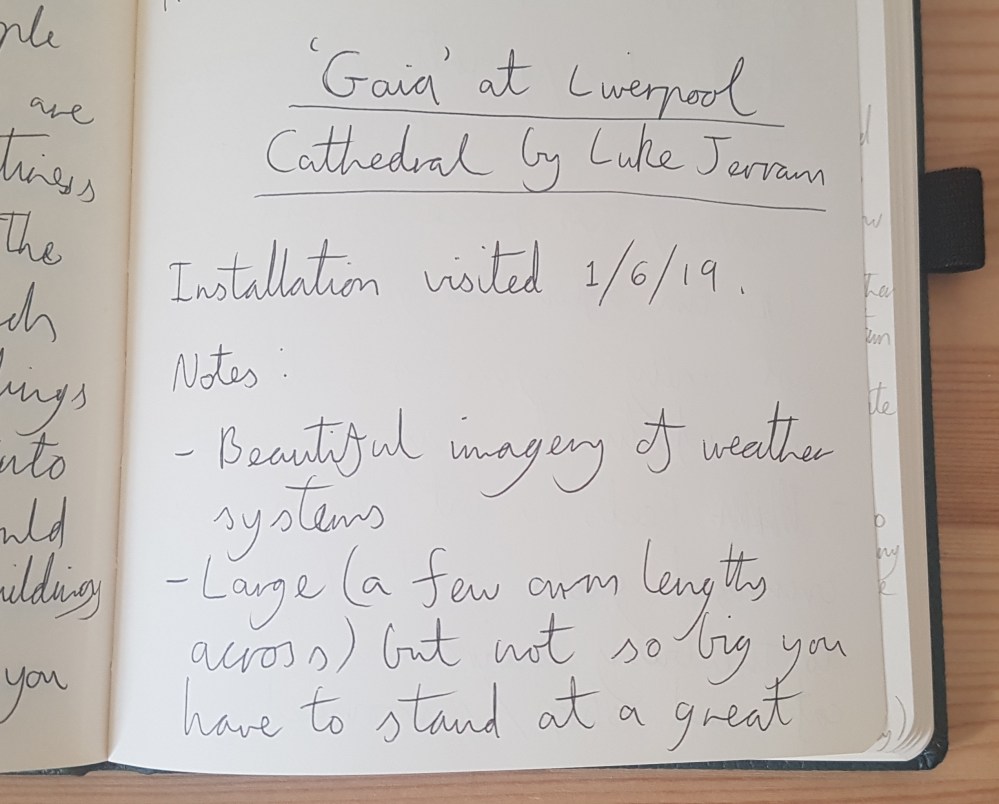 ple
are
tiness
the
ch
ings
into
uld
uildings
you
'Gaia' at Liverpool
Cathedral by Luke Jerram
Installation visited 1/6/19.
Notes:
- Beautiful imagery of weather
systems
- Large (a few arm lengths
across) but not so big you
have to stand at a great